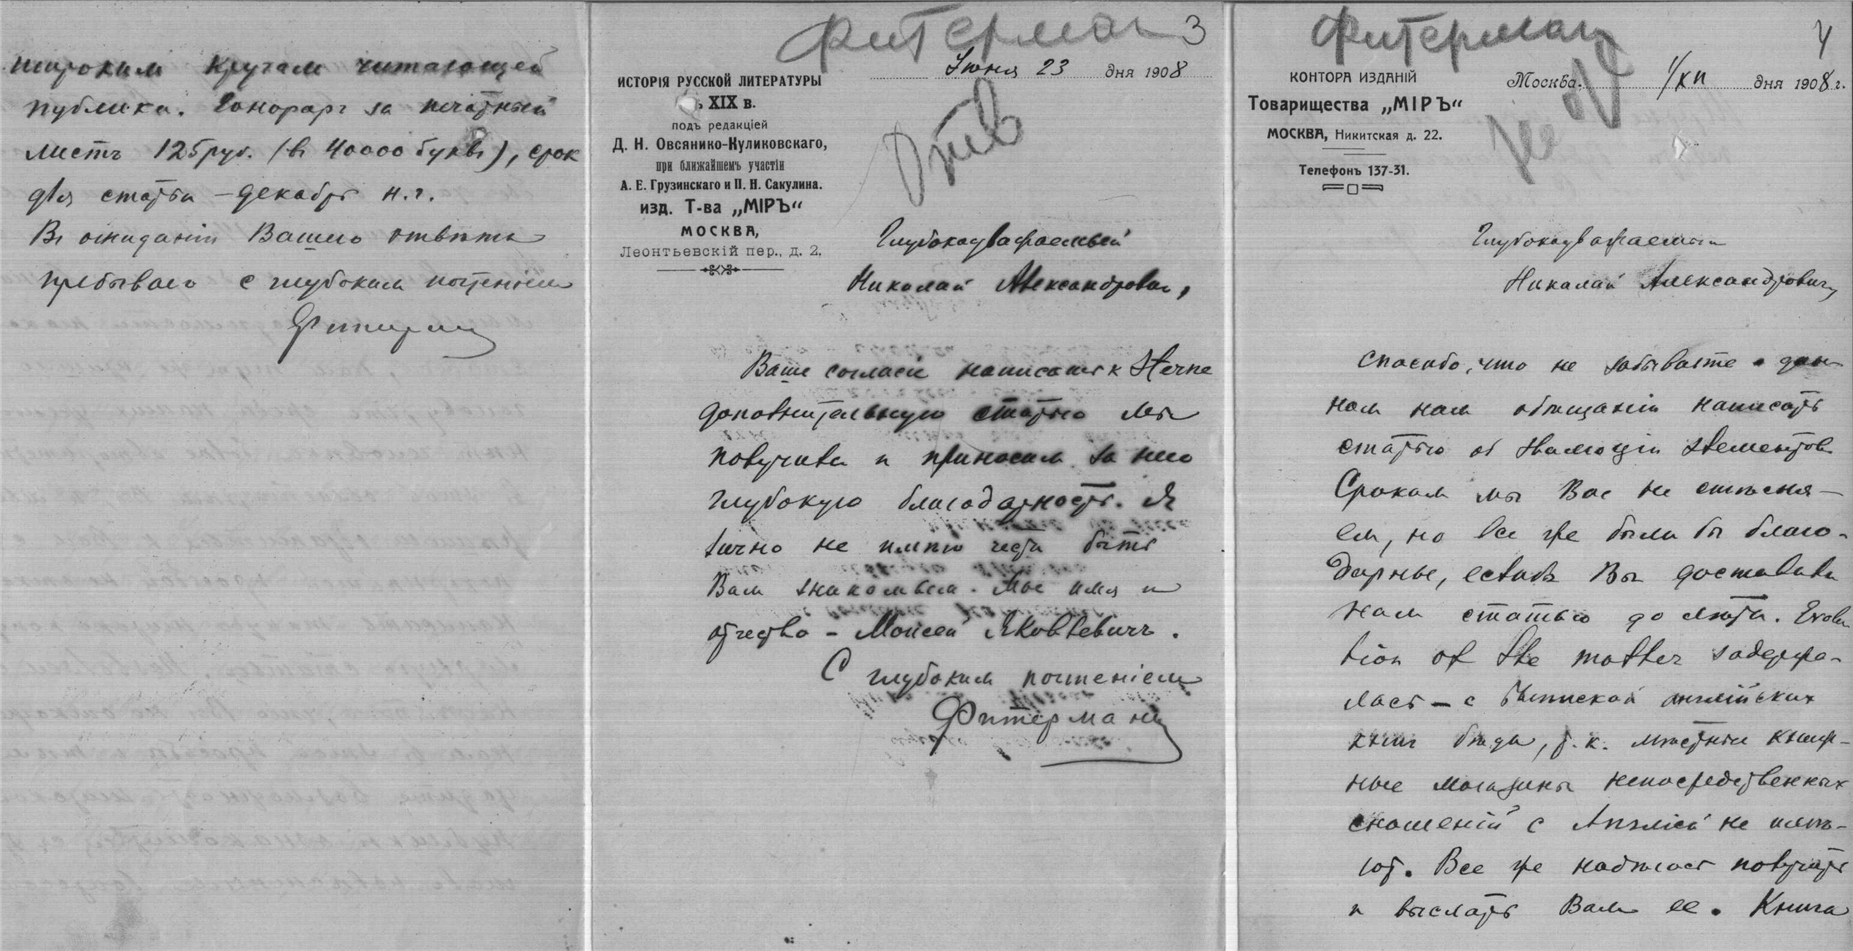 широким кругам читающей
публики. Гонорар за печатный
листъ 125 руб. (въ 40000 буквъ), срок
для статьи – декабрь н.г.
Въ ожиданіи Вашего отвѣта
пребываю с глубоким почтеніем
Фитерман
Фитерман 3
Іюня 23 дня 1908
ИСТОРІЯ РУССКОЙ ЛИТЕРАТУРЫ
XIX в.
подъ редакціей
Д. Н. Овсянико-Куликовскаго,
при ближайшемъ участіи
А. Е. Грузинскаго и П. Н. Сакулина.
изд. Т-ва „МІРЪ“
МОСКВА,
Леонтьевскій пер., д. 2.
Отв
Глубокоуважаемый
Николай Александрович,
Ваше согласіе написать к Sterne
дополнительную статью мы
получили и приносим за него
глубокую благодарность. Я
лично не имѣю чести быть
Вам знакомым. Мое имя и
отчество – Моисей Яковлевичъ.
С глубоким почтеніем
Фитерман
Фитерман 4
КОНТОРА ИЗДАНІЙ
Товарищества „МІРЪ“
МОСКВА, Никитская д. 22.
Телефонъ 137-31.
Москва. 1/XII дня 1908 г.
Глубокоуважаемый
Николай Александрович,
Спасибо, что не забываете о дан-
ном нам обѣщаніи написать
статью об эволюціи элементов
Сроком мы Вас не стѣсня-
ем, но все же были бы благо-
дарны, если бъ Вы доставили
нам статью до лѣта. Evolu
tion of the matter задержа-
лась – с выпиской англійских
книг бѣда, т.к. мѣстные книж-
ные магазины непосредственных
сношеній с Англіей не имѣ-
ют. Все же надѣюсь получить
и выслать Вам ее. Книга